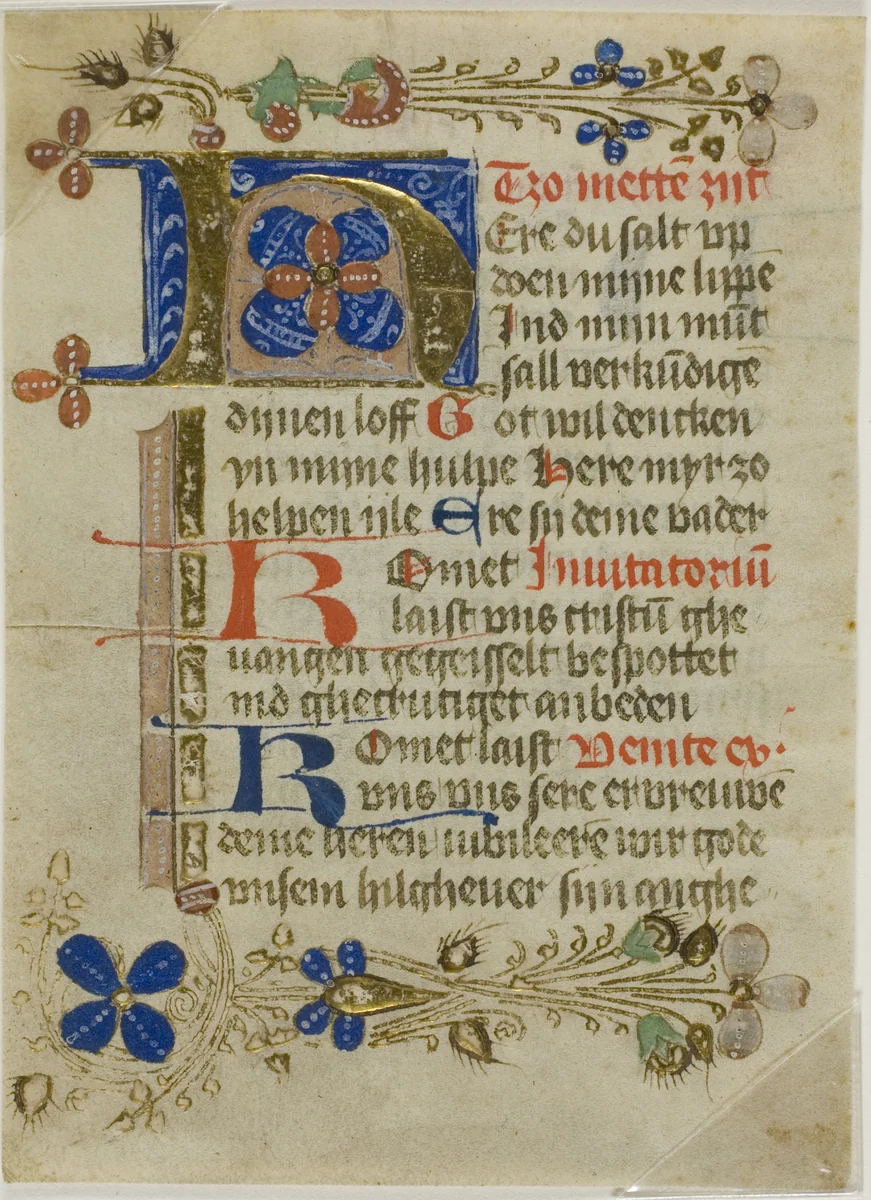 Tzo mettē zijt
HEre du salt vp
doen mijne lippe
Jnd mijn mūt
sall verkūdige
dijnen loff Got wil dencken
yn mijne hulpe Here myr zo
helpen ijle Ere sij deme vader
KOmet Jnuitatoriū
laist vns cristū ghe
uangen gegeisselt bespottet
ind ghecrutiget anbeden
KOmet laist Venite ex·
vns vns sere ervreuwē
deme heren iubileere wir gode
vnsem hilgheuer sijn anghe